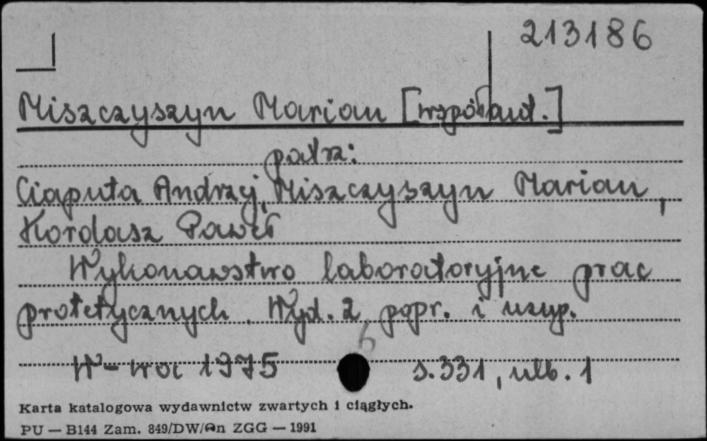 213186
Miszczyszyn Marian [współaut.]
patrz:
Ciaputa Andrzej, Miszczyszyn Marian,
Kordasz Paweł
Wykonawstwo laboratoryjne prac
protetycznych. Wyd. 2 popr. i uzup.
W-wroc 1975 s. 331, nlb. 1
6
Karta katalogowa wydawnictw zwartych i ciągłych.
PU — B144 Zam. 849/DW/An ZGG — 1991